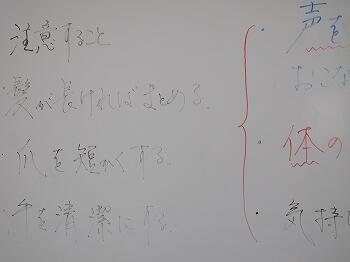 注意すること
・髪が長ければまとめる.
・爪を短くする.
・手を清潔にする.
・声を
おこな
・体の
・気持